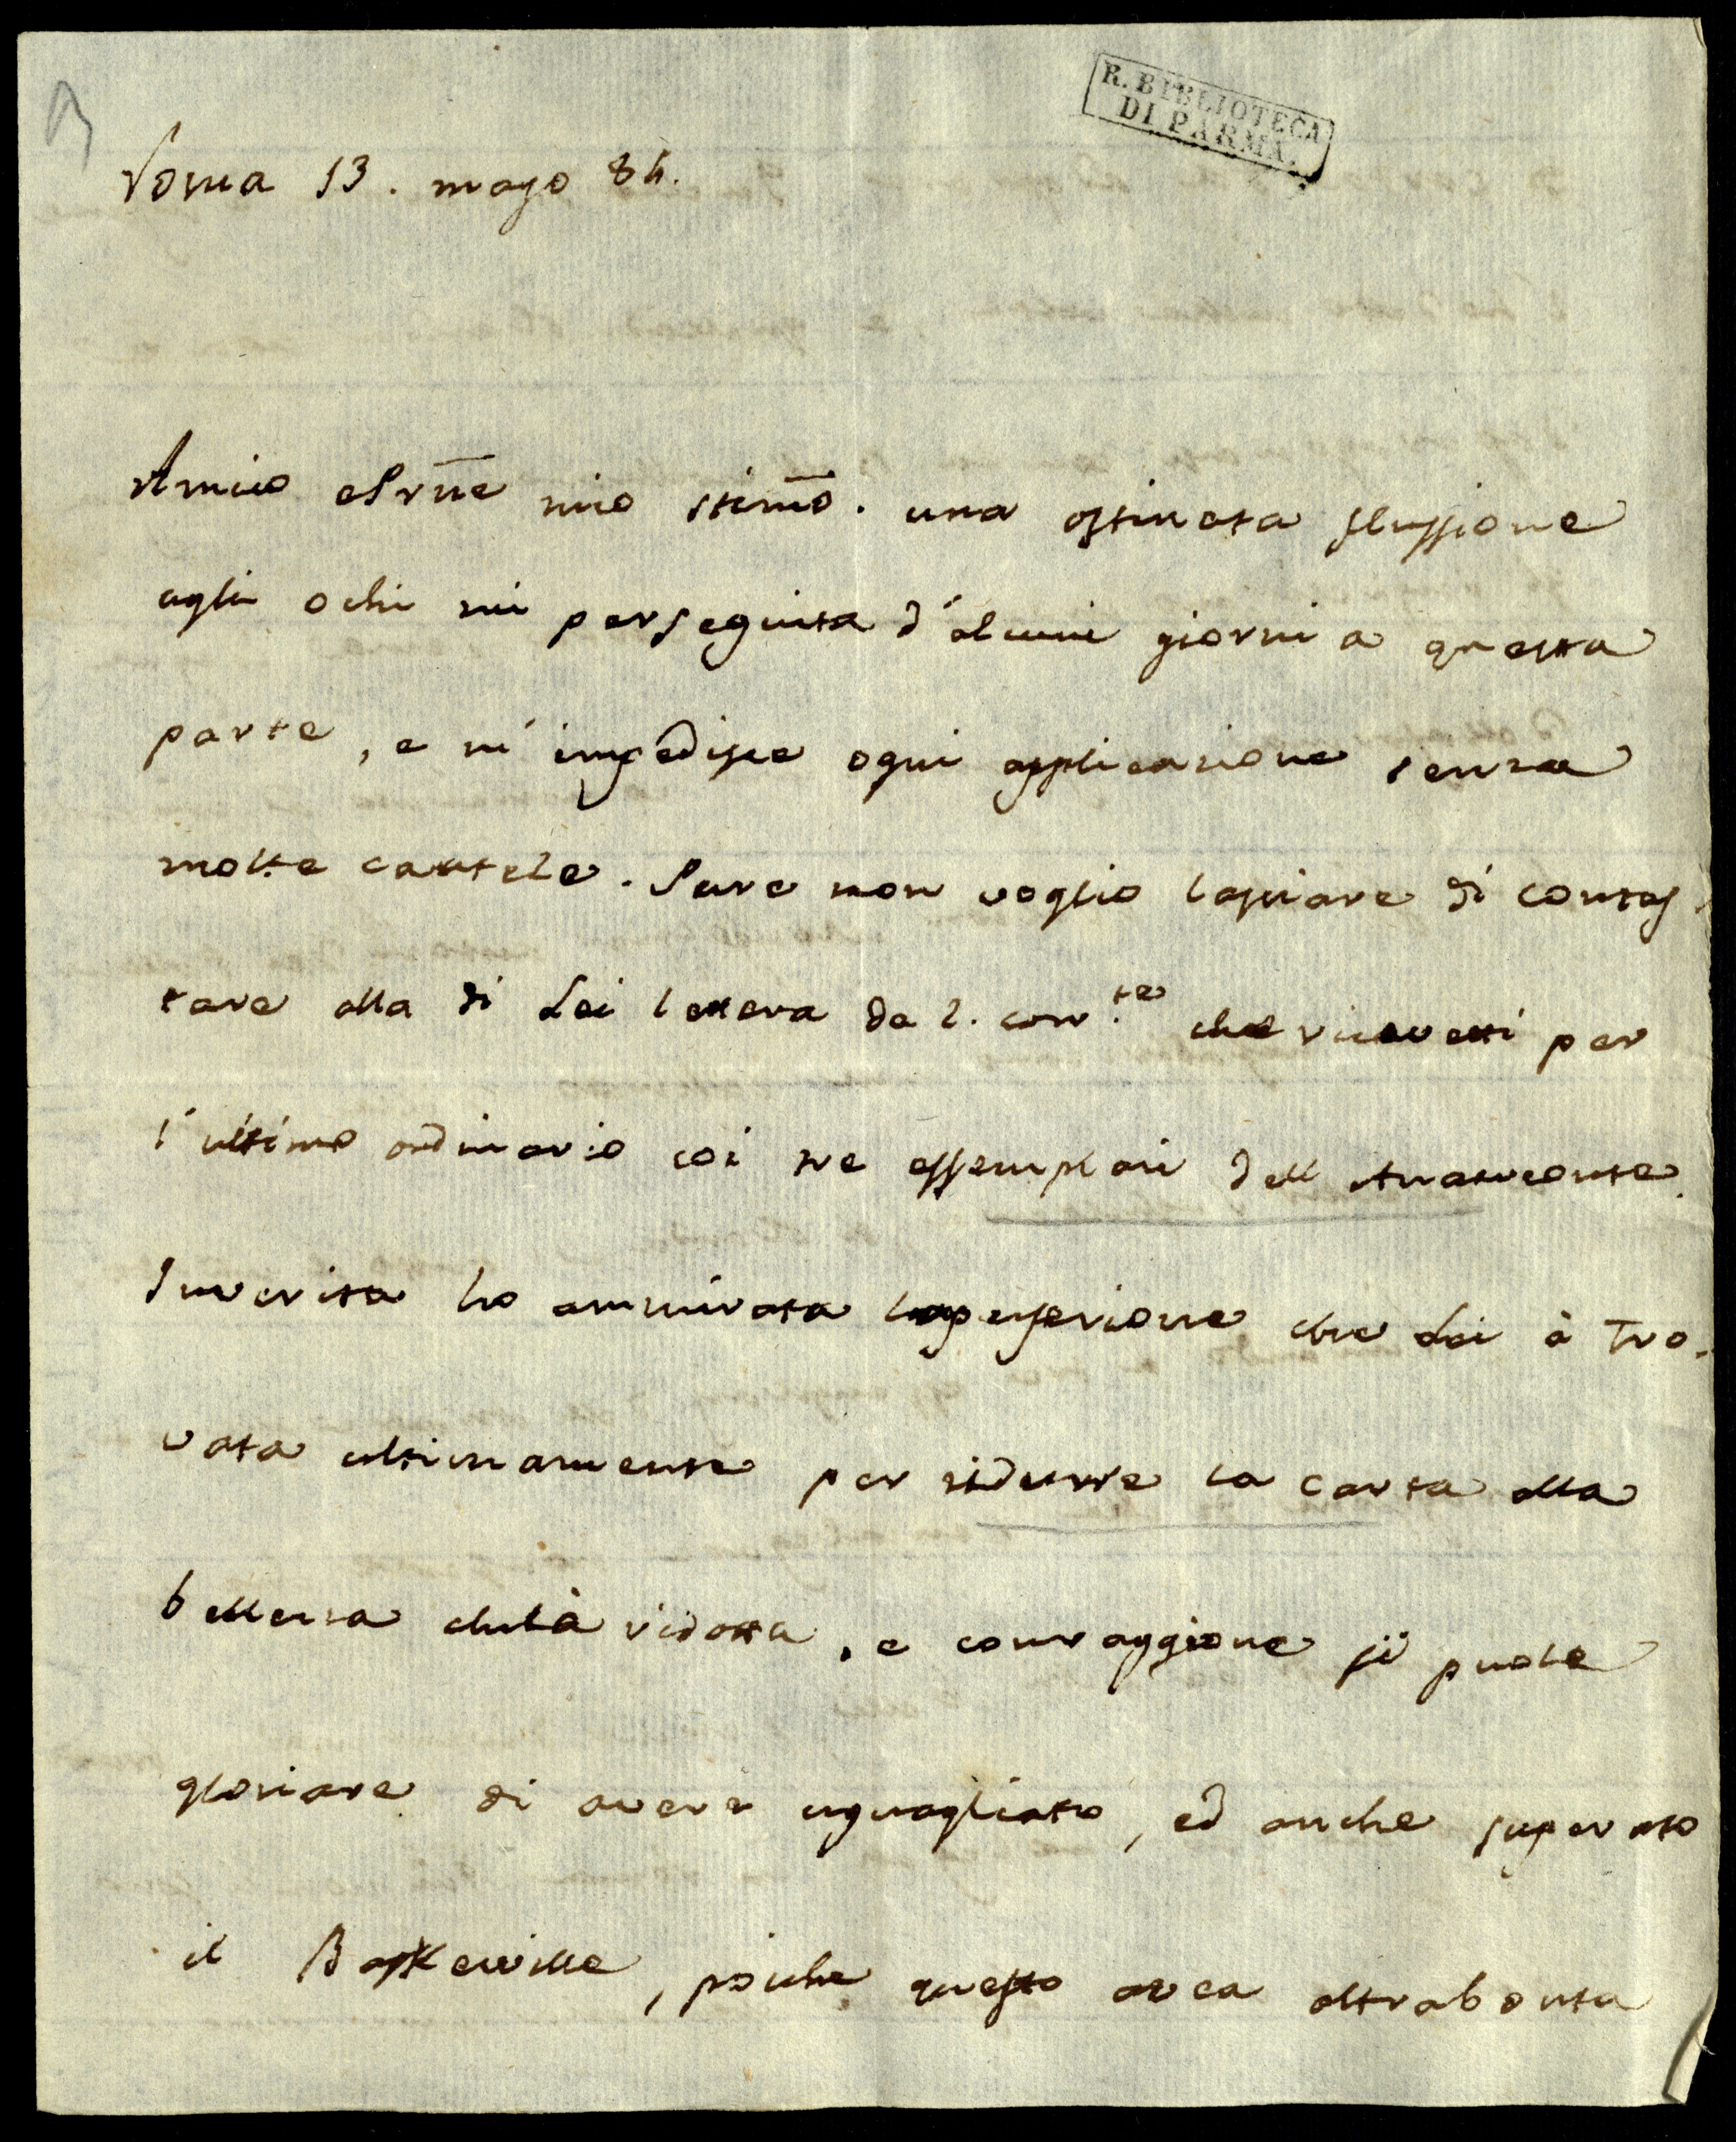 R. BIBLIOTECA
DI PARMA.
Roma 13. mago 84.
Amico e Prñe mio stim̃o. una ostinata flussione
agli ochi mi perseguita d'alcuni giorni a questa
parte, e m'impedisce ogni applicazione senza
molte cautele. Pure non voglio lasciare di contes
tare alla di Lei lettera de 2. corr.te che ricevetti per
l'ultimo ordinario coi tre essemplari dell Anacreonte.
Inverita ho ammirata la perfezione che Lei à tro.
vata ultimamente per ridurre la carta alla
bellezza che là ridotta, e con raggione si puole
gloriare di avere uguagliato, ed anche superato
il Baskerville, poiche questo avea oltrabonta